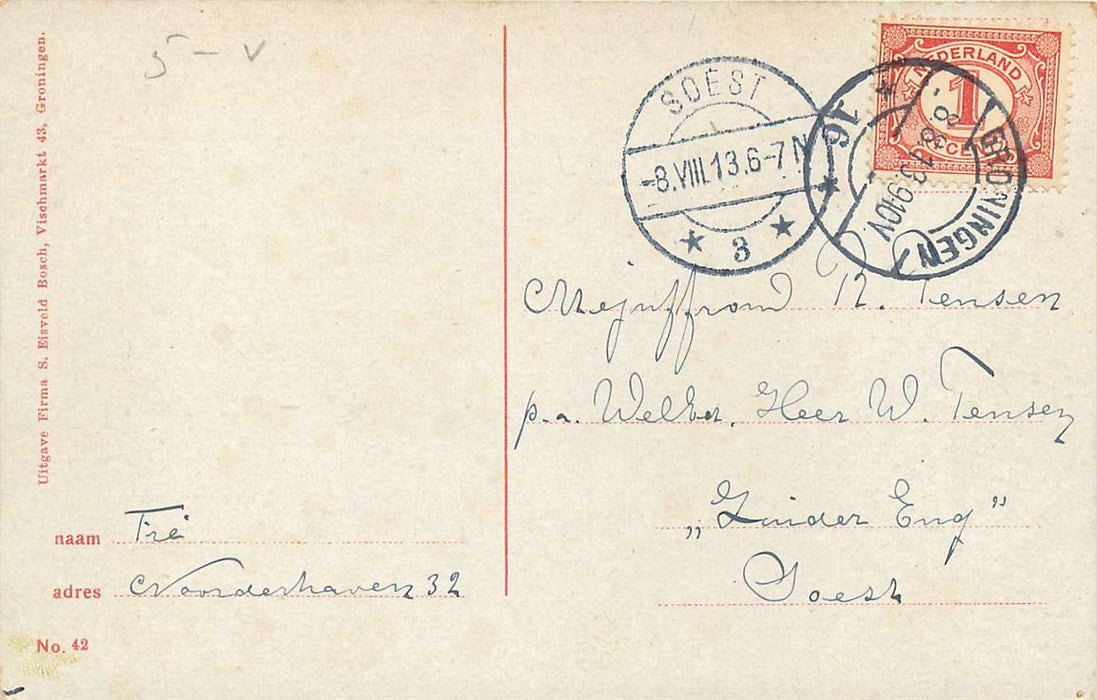 5 – v
Uitgave Firma S. Eisveld Bosch, Vischmarkt 43, Groningen.
naam Tré
adres Noorderhaven 32
No. 42
SOEST
-8.VIII.13.6-7N
3
NEDERLAND
1
CENT
GRONINGEN
8.8.13.9-10V.
Mejuffrouw R. Tensen
p.a. WelEd. Heer W. Tensen
„Zuider Eng”
Soest